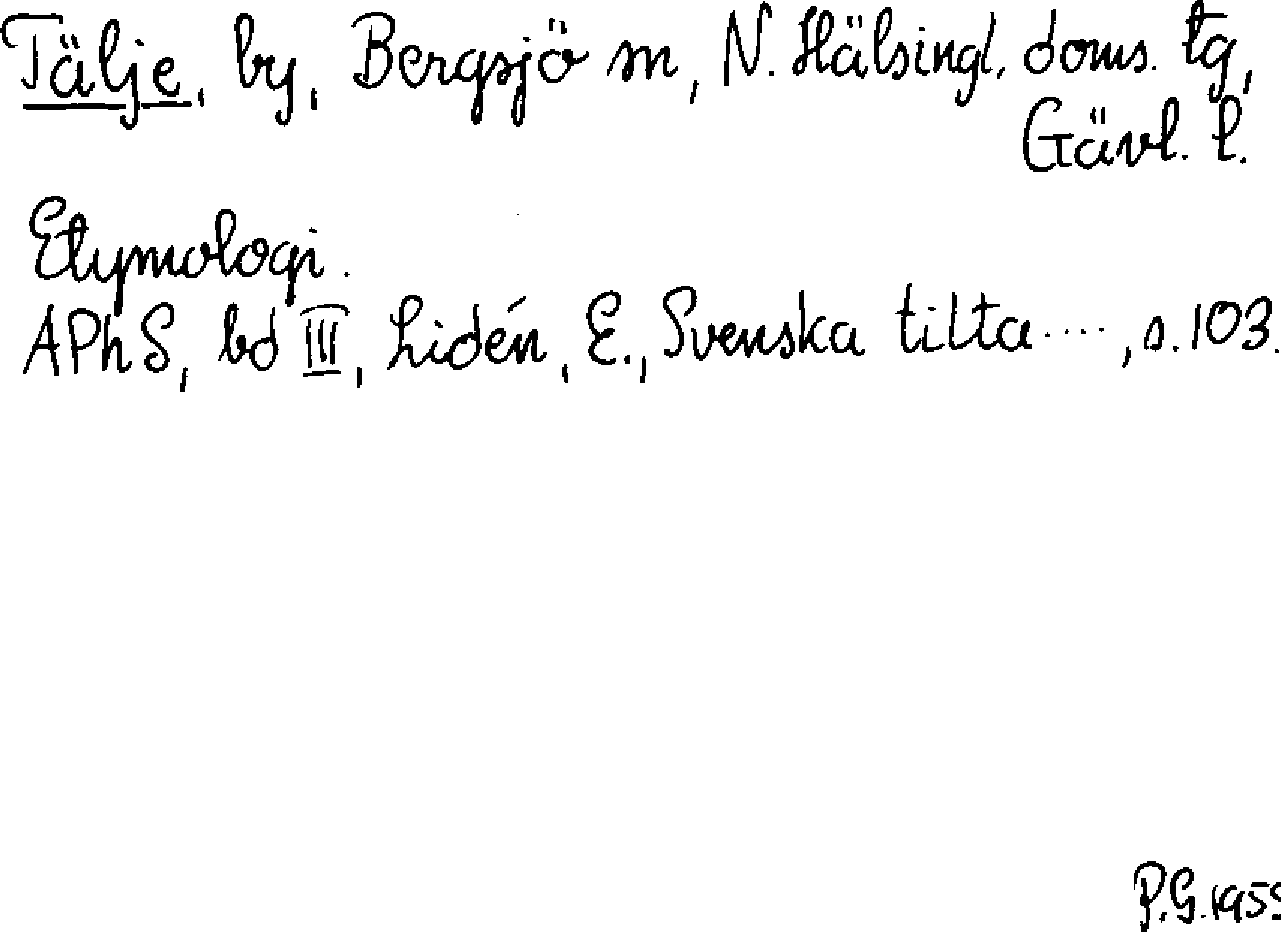 Tälje, by, Bergsjö sn, N. Hälsingl. doms. tg,
Gävl. l.
Etymologi.
APhS, bd III, Lidén, E., Svenska tilta ...., s. 103.
P.G. 195